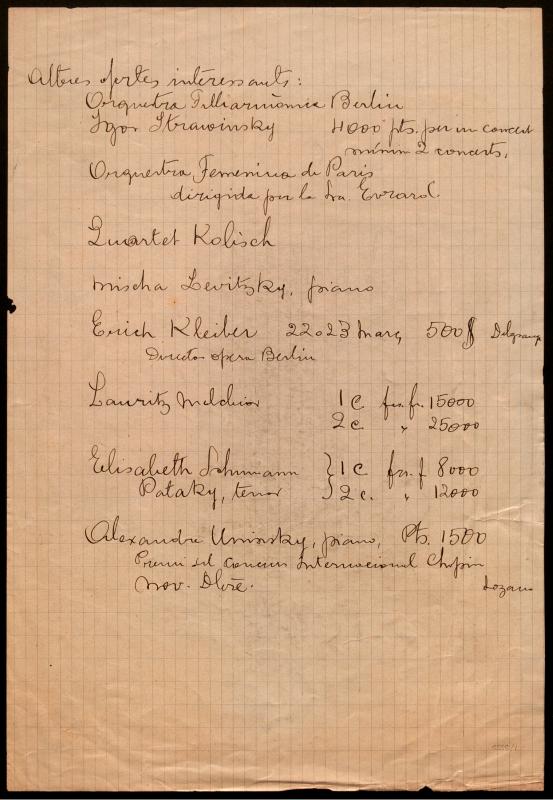 Altres ofertes interessants:
Orquestra Filharmònica Berlin
Igor Strawinsky 4000 pts. per un concert
mínim 2 concerts.
Orquestra Femenina de Paris
dirigida per la Sra. Evrard
Quartet Kolisch
Mischa Levitzky, piano
Erich Kleiber 22 o 23 Març 500 $
Director opera Berlin
Lauritz Melchior 1 c frs. fr. 15000
2 c. " 25000
Elisabeth Schumann } 1 c frs. f 8000
Pataky, tenor } 2 c. " 12000
Alexandre Uninsky, piano, Pts. 1500
Premi del concurs Internacional Chopin
Nov. Dbre. Lozano